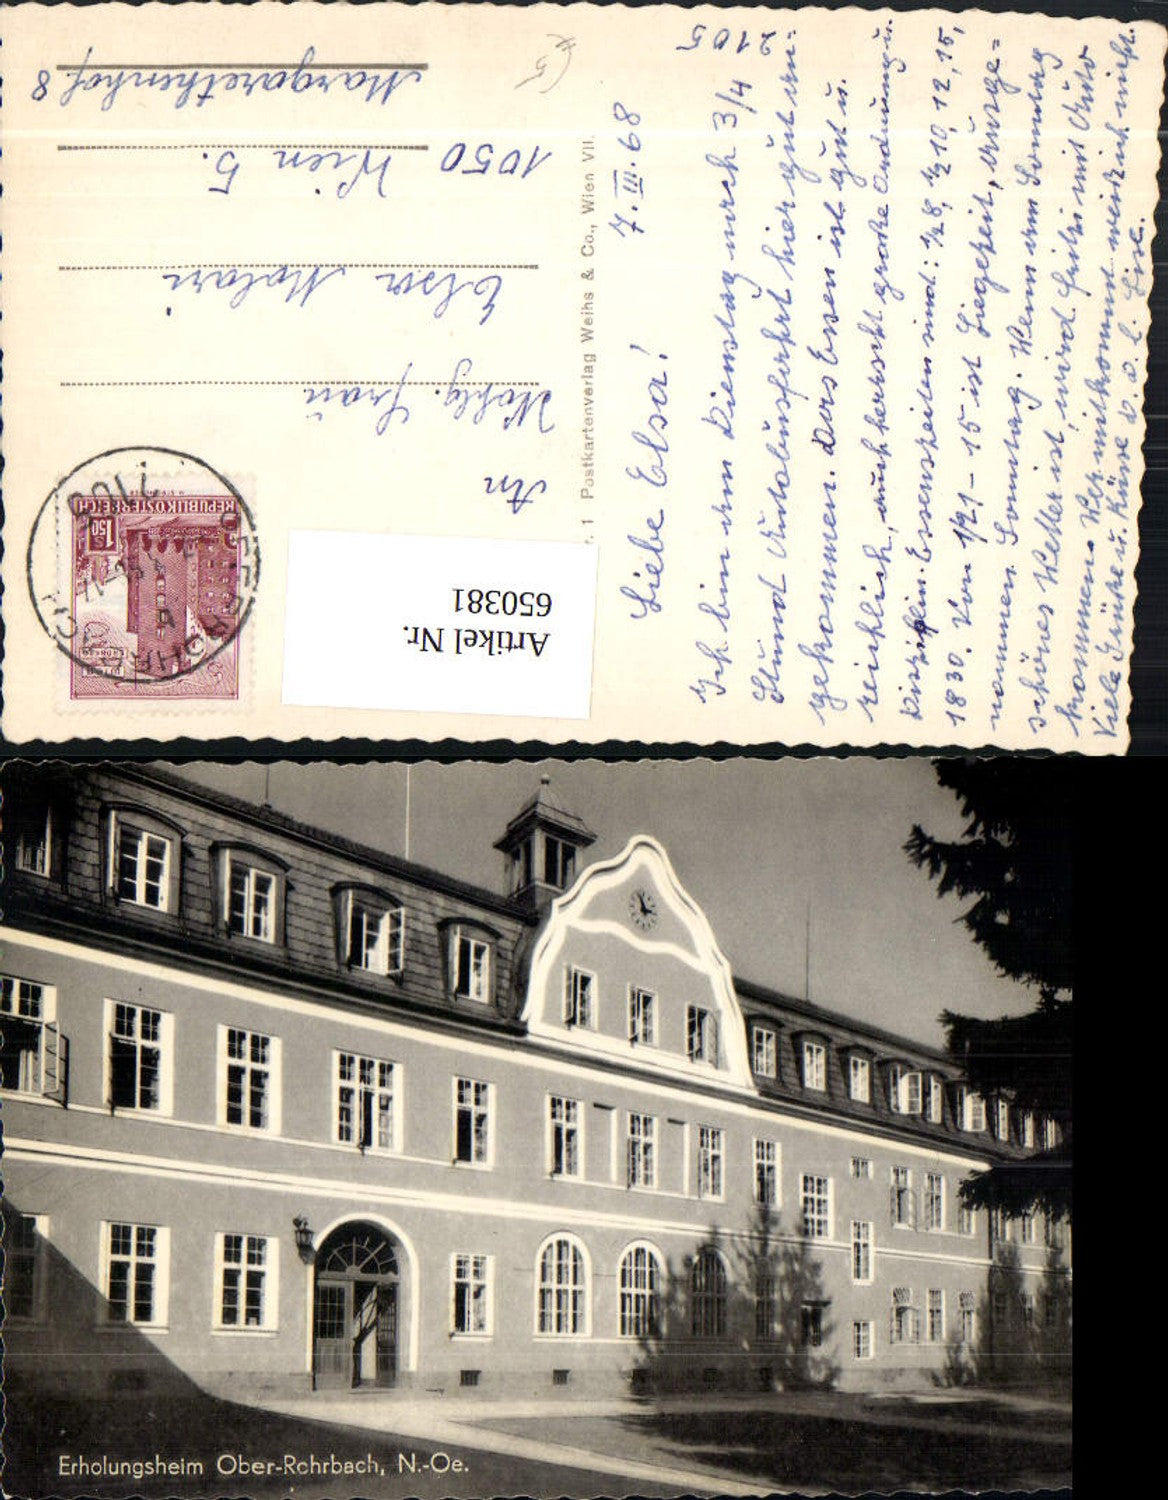 7. III. 68
Liebe Elsa!
Ich bin am Dienstag nach 3/4
2105
Stund Autobusfahrt hier gut an=
gekommen. Das Essen ist gut u.
reichlich, auch herrscht große Ordnung u.
Disziplin. Essenszeiten sind: 1/2 8, 1/2 10, 12, 15,
1830. Von 1/2 1 - 15 ist Liegezeit, ausge=
nommen Sonntag. Wenn am Sonntag
schönes Wetter ist, wird Fritzi mit Auto
kommen. Wer mitkommt weiß ich nicht.
Viele Grüße u. Küsse v. d. l. Lise.
Postkartenverlag Weihs & Co., Wien VII.
An
Wohlg. Frau
Elsa
1050 Wien 5.
Margarethenhof 8
REPUBLIK ÖSTERREICH
1.50
Artikel Nr.
650381
Erholungsheim Ober-Rohrbach, N.-Oe.